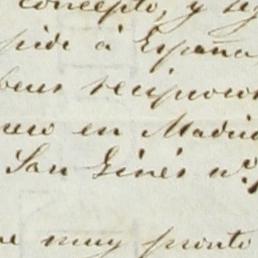 concepto, y se
pide á España
beus reciproco
en Madrid
San Ginés nº
muy pronto